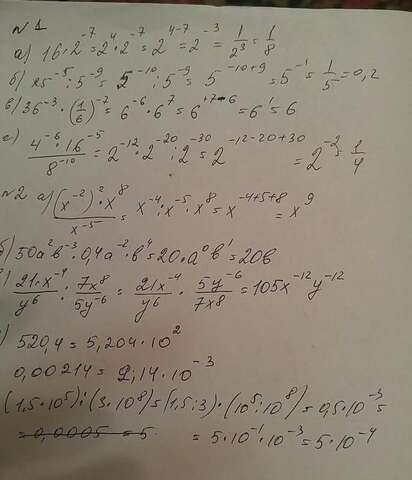 №1
а) 16·2⁻⁷=2⁴·2⁻⁷=2⁴⁻⁷=2⁻³=1/2³=1/8
б) 25⁻⁵:5⁻⁹=5⁻¹⁰:5⁻⁹=5⁻¹⁰⁺⁹=5⁻¹=1/5=0,2
в) 36⁻³·(1/6)⁻⁷=6⁻⁶·6⁷=6⁺⁷⁻⁶=6¹=6
г) 4⁻⁶·16⁻⁵/8⁻¹⁰=2⁻¹²·2⁻²⁰:2⁻³⁰=2⁻¹²⁻²⁰⁺³⁰=2⁻²=1/4
№2 а) (x⁻²)²·x⁸/x⁻⁵=x⁻⁴:x⁻⁵·x⁸=x⁻⁴⁺⁵⁺⁸=x⁹
б) 50a²b⁻³·0,4a⁻²·b⁴=20·a⁰b¹=20b
21·x⁻⁴/y⁶:7x⁸/5y⁻⁶=21x⁻⁴/y⁶·5y⁻⁶/7x⁸=105x⁻¹²y⁻¹²
) 520,4=5,204·10²
0,00214=2,14·10⁻³
(1,5·10⁵):(3·10⁸)=(1,5:3)·(10⁵:10⁸)=0,5·10⁻³=
=0,0005=5 =5·10⁻¹·10⁻³=5·10⁻⁴